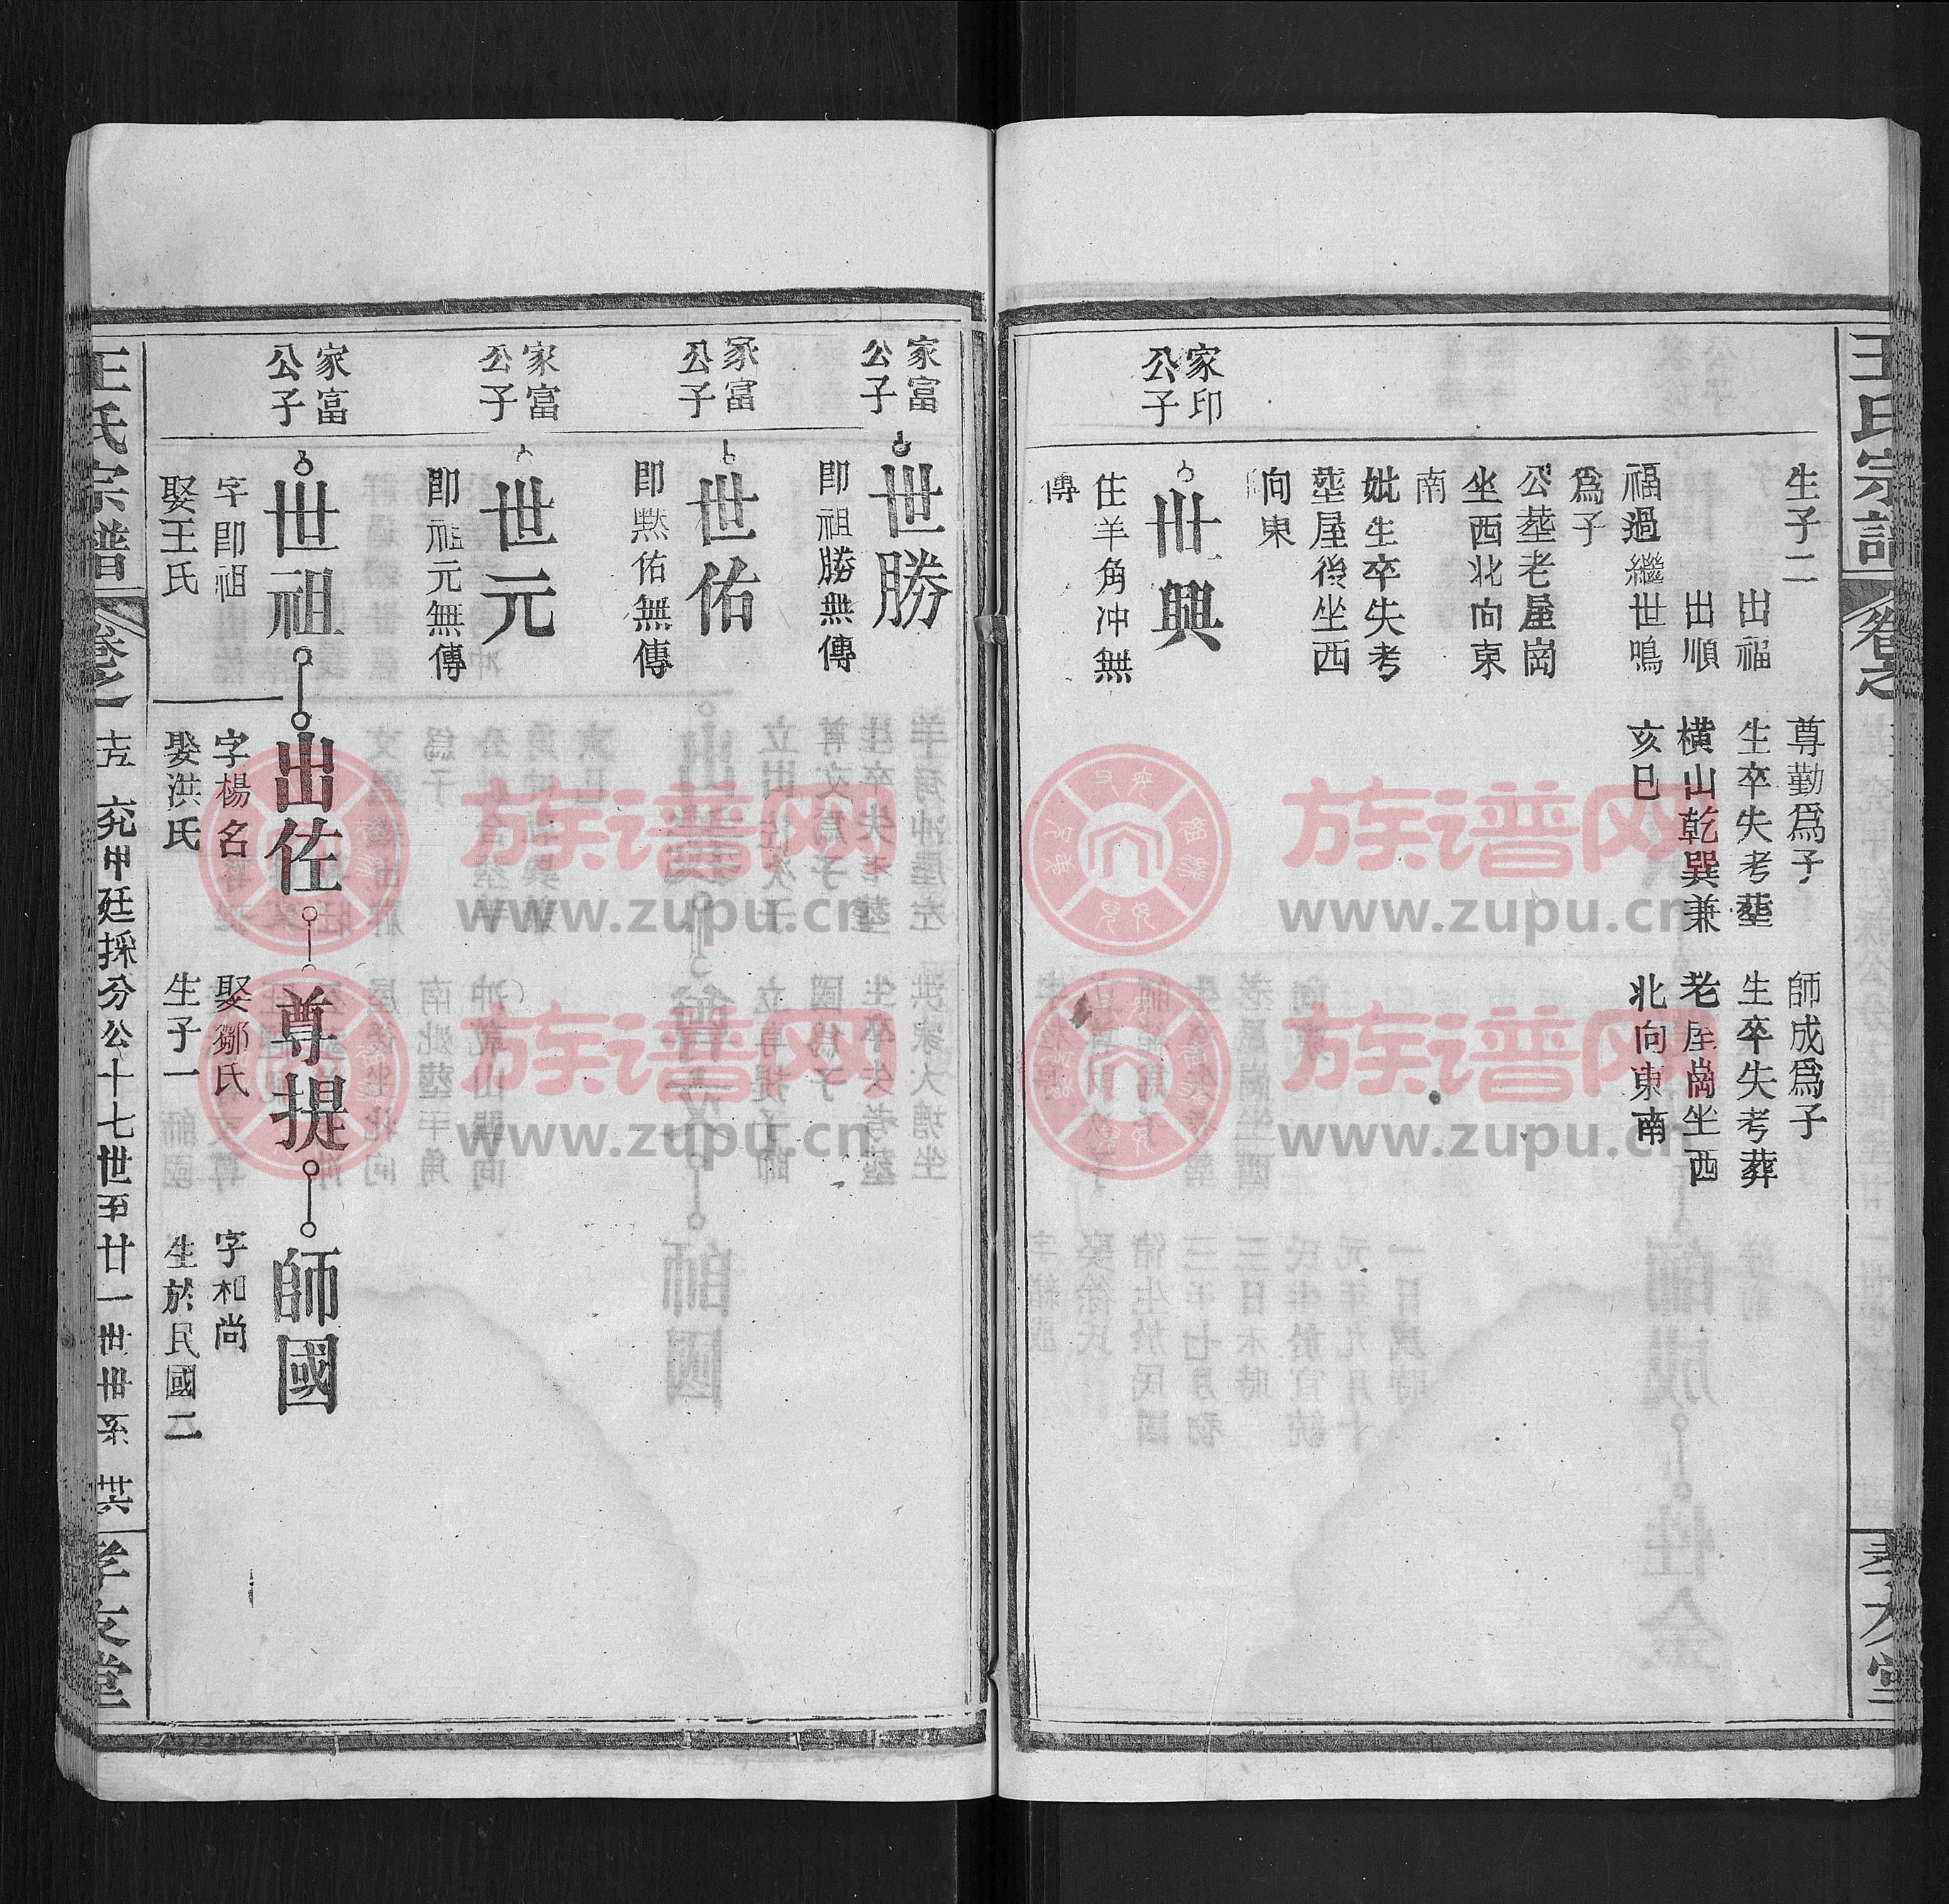 王氏宗譜
卷之
生子二
出福
出順
福過繼世鳴
爲子
公塟老屋崗
坐西北向東
南
妣生卒失考
塟屋後坐西
向東
尊勤爲子
生卒失考塟
橫山乾巽兼
亥巳
師成爲子
生卒失考葬
老屋崗坐西
北向東南
家印
公子
世興
住羊角冲無
傳
家富
公子
世勝
卽祖勝無傳
家富
公子
世佑
卽黙佑無傳
家富
公子
世元
卽祖元無傳
家富
公子
世祖
字卽祖
娶王氏
出佐
字楊名
娶洪氏
尊提
娶鄒氏
生子一
師國
字和尚
生於民國二
王氏宗譜
卷之
十五
甲廷採分公十七世至廿一世世系
孝友堂
族谱网
www.zupu.cn
族谱网
www.zupu.cn
族谱网
www.zupu.cn
族谱网
www.zupu.cn